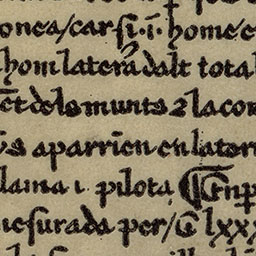 onea/car si .i. home e
hom la terra dalt tota
et dels munts 2 la con
s aparrien en la terr
lama i pilota
mesurada per/ lxxx